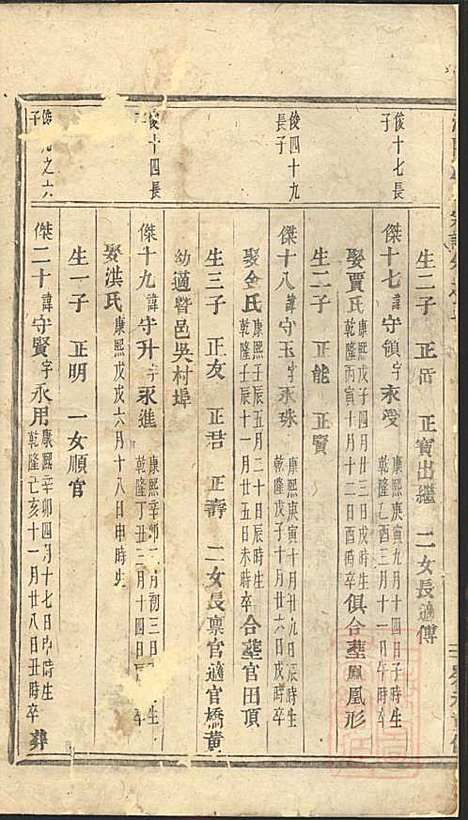 生二子 正岳 正寳出繼 二女長適傅
俊十七長子
傑十七諱守領字永受 康熙庚寅九月十四日子時生 乾隆乙酉三月十一日午時卒
娶賈氏 康熙戊子四月廿三日戌時生 乾隆丙寅十月十一日酉時卒 俱合塟鳳凰形
生二子 正能 正賢
俊四十九長子
傑十八諱守玉字永珠 康熙庚寅十月廿九日辰時生 乾隆 十一月廿六日戌時卒
娶金氏 康熙壬辰五月二十日辰時生 乾隆壬辰十一月廿五日未時卒 合塟官田頂
生三子 正友 正君 正壽 二女長稟官適官橋黄
幼適暨邑吳村埠
俊十四長子
傑十九諱守升字永進 康熙辛卯 月初三日 生 乾隆丁丑三月十四日 卒
娶洪氏 康熙戊戌六月十八日申時生
生一子 正明 一女順官
之六子
傑二十諱守賢字永用 康熙辛卯四月十七日 時生 乾隆己亥十一月廿八日丑時卒 葬